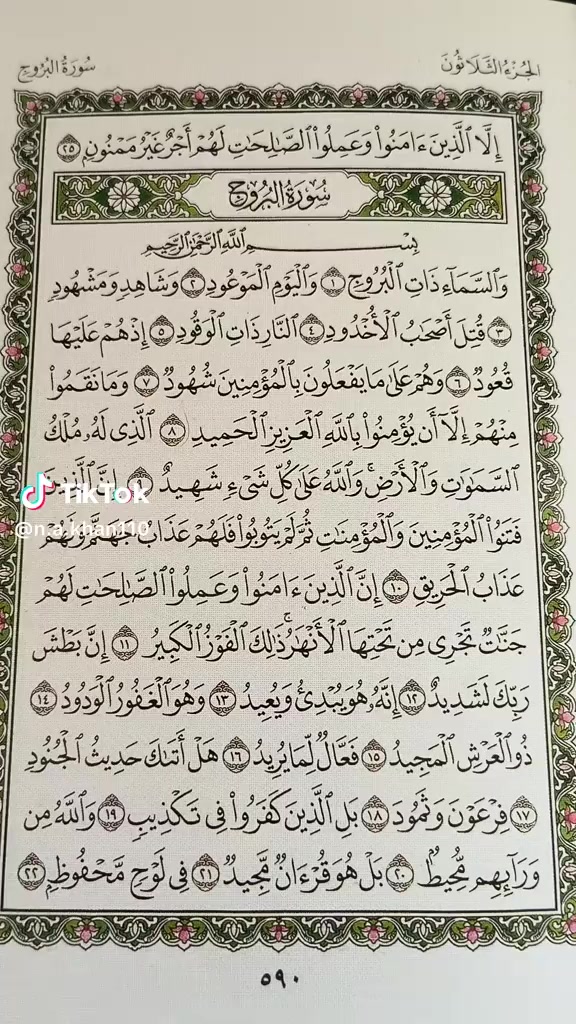 الجُزْءُ الثَّلَاثُونَ
سُورَةُ البُرُوجِ
إِلَّا ٱلَّذِينَ ءَامَنُوا۟ وَعَمِلُوا۟ ٱلصَّـٰلِحَـٰتِ لَهُمْ أَجْرٌ غَيْرُ مَمْنُونٍ ٢٥
سُورَةُ البُرُوجِ
بِسْمِ ٱللَّهِ ٱلرَّحْمَـٰنِ ٱلرَّحِيمِ
وَٱلسَّمَآءِ ذَاتِ ٱلْبُرُوجِ ١ وَٱلْيَوْمِ ٱلْمَوْعُودِ ٢ وَشَاهِدٍ وَمَشْهُودٍ
٣ قُتِلَ أَصْحَـٰبُ ٱلْأُخْدُودِ ٤ ٱلنَّارِ ذَاتِ ٱلْوَقُودِ ٥ إِذْ هُمْ عَلَيْهَا
قُعُودٌ ٦ وَهُمْ عَلَىٰ مَا يَفْعَلُونَ بِٱلْمُؤْمِنِينَ شُهُودٌ ٧ وَمَا نَقَمُوا۟
مِنْهُمْ إِلَّآ أَن يُؤْمِنُوا۟ بِٱللَّهِ ٱلْعَزِيزِ ٱلْحَمِيدِ ٨ ٱلَّذِى لَهُۥ مُلْكُ
ٱلسَّمَـٰوَٰتِ وَٱلْأَرْضِ ۚ وَٱللَّهُ عَلَىٰ كُلِّ شَىْءٍ شَهِيدٌ ٩ إِنَّ ٱلَّذِينَ
فَتَنُوا۟ ٱلْمُؤْمِنِينَ وَٱلْمُؤْمِنَـٰتِ ثُمَّ لَمْ يَتُوبُوا۟ فَلَهُمْ عَذَابُ جَهَنَّمَ وَلَهُمْ
عَذَابُ ٱلْحَرِيقِ ١٠ إِنَّ ٱلَّذِينَ ءَامَنُوا۟ وَعَمِلُوا۟ ٱلصَّـٰلِحَـٰتِ لَهُمْ
جَنَّـٰتٌ تَجْرِى مِن تَحْتِهَا ٱلْأَنْهَـٰرُ ۚ ذَٰلِكَ ٱلْفَوْزُ ٱلْكَبِيرُ ١١ إِنَّ بَطْشَ
رَبِّكَ لَشَدِيدٌ ١٢ إِنَّهُۥ هُوَ يُبْدِئُ وَيُعِيدُ ١٣ وَهُوَ ٱلْغَفُورُ ٱلْوَدُودُ ١٤
ذُو ٱلْعَرْشِ ٱلْمَجِيدُ ١٥ فَعَّالٌ لِّمَا يُرِيدُ ١٦ هَلْ أَتَىٰكَ حَدِيثُ ٱلْجُنُودِ
١٧ فِرْعَوْنَ وَثَمُودَ ١٨ بَلِ ٱلَّذِينَ كَفَرُوا۟ فِى تَكْذِيبٍ ١٩ وَٱللَّهُ مِن
وَرَآئِهِم مُّحِيطٌۢ ٢٠ بَلْ هُوَ قُرْءَانٌ مَّجِيدٌ ٢١ فِى لَوْحٍ مَّحْفُوظٍۭ ٢٢
٥٩٠
TikTok
@n.a.khan110